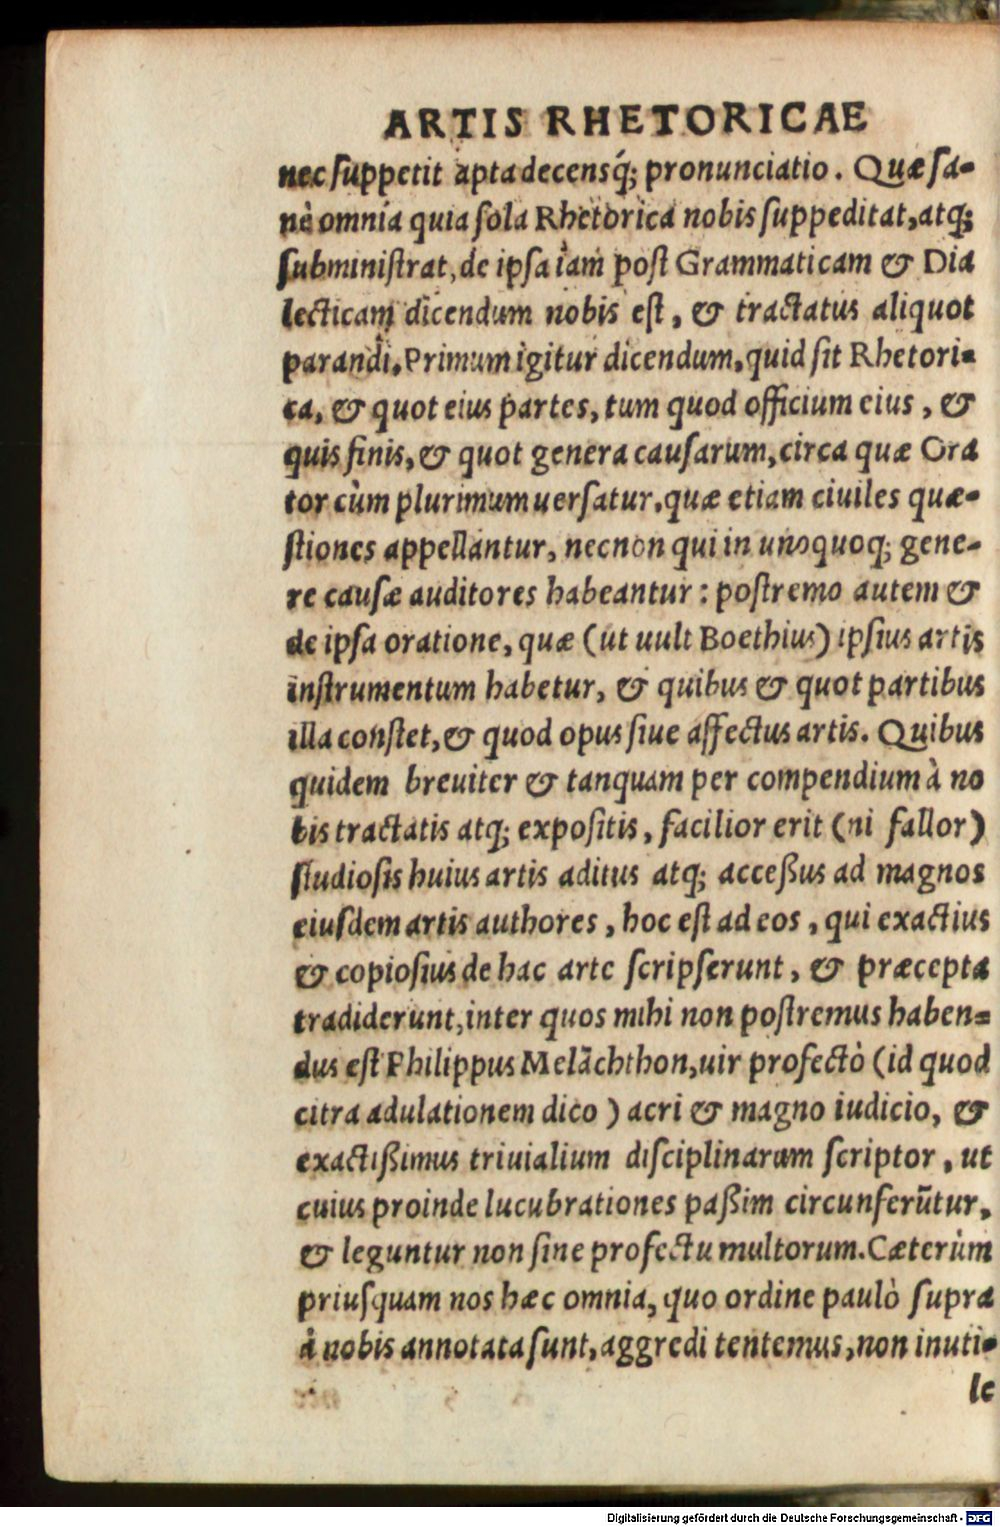 ARTIS RHETORICAE
nec suppetit apta decensq́; pronunciatio. Quæ sa-
nè omnia quia sola Rhetorica nobis suppeditat, atq;
subministrat, de ipsa iam post Grammaticam & Dia
lecticam dicendum nobis est, & tractatus aliquot
parandi. Primum igitur dicendum, quid sit Rhetori-
ca, & quot eius partes, tum quod officium eius, &
quis finis, & quot genera causarum, circa quæ Ora
tor cùm plurimum uersatur, quæ etiam ciuiles quæ-
stiones appellantur, necnon qui in unoquoq; gene-
re causæ auditores habeantur: postremo autem &
de ipsa oratione, quæ (ut uult Boethius) ipsius artis
instrumentum habetur, & quibus & quot partibus
illa constet, & quod opus siue affectus artis. Quibus
quidem breuiter & tanquam per compendium à no
bis tractatis atq; expositis, facilior erit (ni fallor)
studiosis huius artis aditus atq; acceßus ad magnos
eiusdem artis authores, hoc est ad eos, qui exactius
& copiosius de hac arte scripserunt, & præcepta
tradiderunt, inter quos mihi non postremus haben=
dus est Philippus Melāchthon, uir profectò (id quod
citra adulationem dico) acri & magno iudicio, &
exactißimus triuialium disciplinarum scriptor, ut
cuius proinde lucubrationes paßim circunferūtur,
& leguntur non sine profectu multorum. Cæterùm
priusquam nos hæc omnia, quo ordine paulò supra
à nobis annotata sunt, aggredi tentemus, non inuti-
le
Digitalisierung gefördert durch die Deutsche Forschungsgemeinschaft - DFG